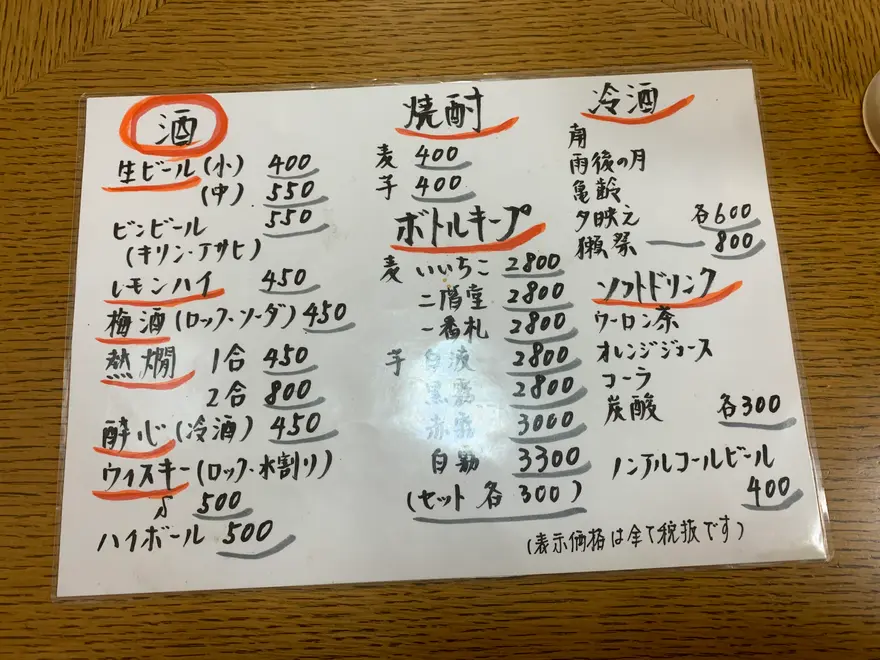 酒
生ビール(小) 400
(中) 550
ビンビール 550
(キリン・アサヒ)
レモンハイ 450
梅酒(ロック・ソーダ) 450
熱燗 1合 450
2合 800
酔心(冷酒) 450
ウィスキー(ロック・水割り)
500
ハイボール 500
焼酎
麦 400
芋 400
ボトルキープ
麦 いいちこ 2800
二階堂 2800
一番札 2800
芋 白波 2800
黒霧 2800
赤霧 3000
白霧 3300
(セット 各300)
冷酒
南
雨後の月
亀齢
夕映え 各600
獺祭 800
ソフトドリンク
ウーロン茶
オレンジジュース
コーラ
炭酸 各300
ノンアルコールビール
400
(表示価格は全て税抜です)